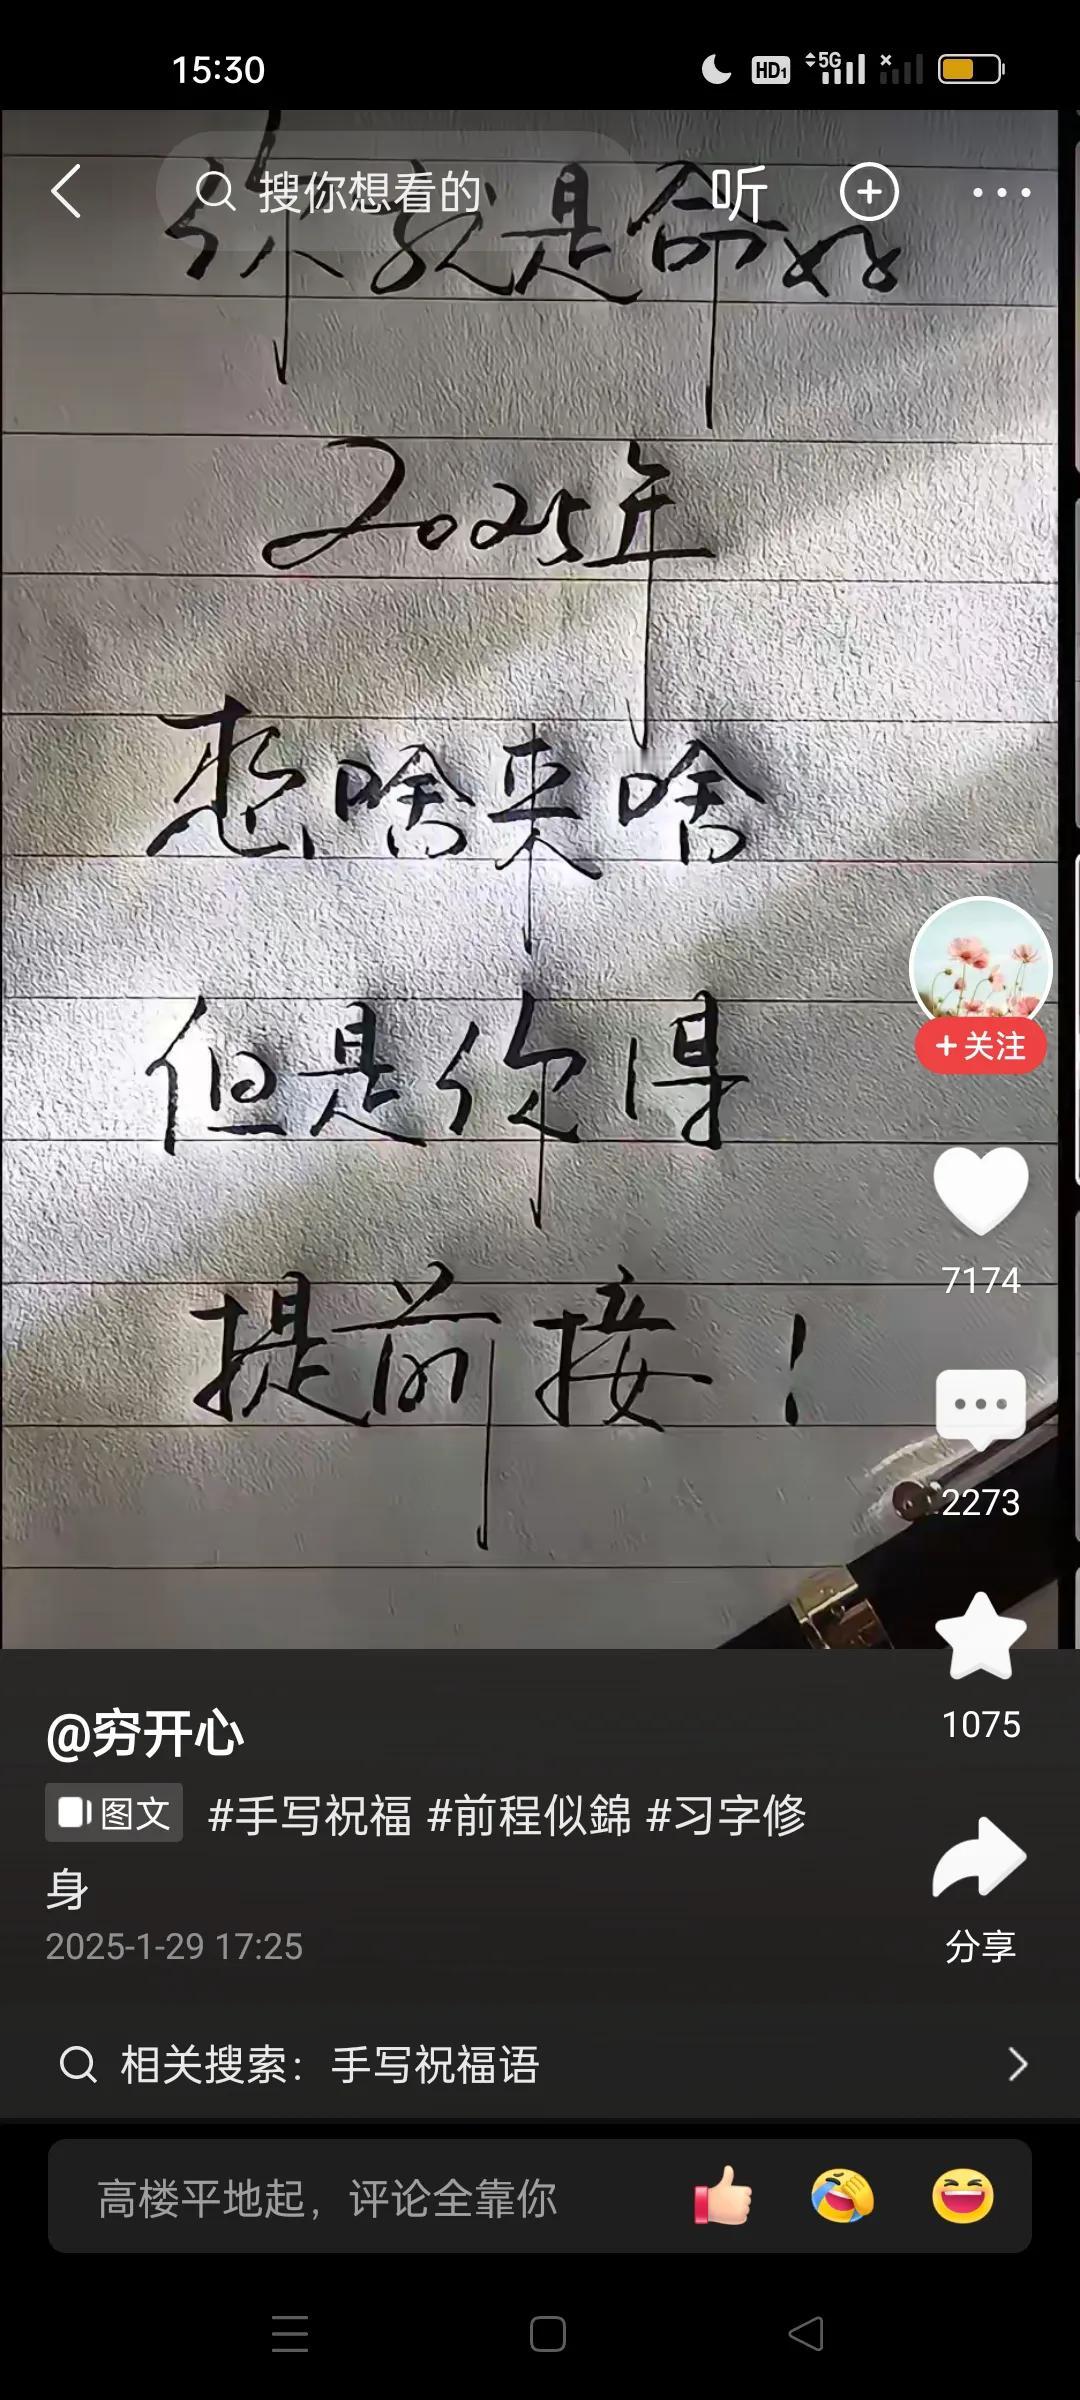 15:30
HD1 5G
搜你想看的 听
你就是命好
2025年
想啥来啥
但是你得
提前接！
+关注
7174
2273
1075
分享
@穷开心
图文 #手写祝福 #前程似錦 #习字修
身
2025-1-29 17:25
相关搜索：手写祝福语
高楼平地起，评论全靠你